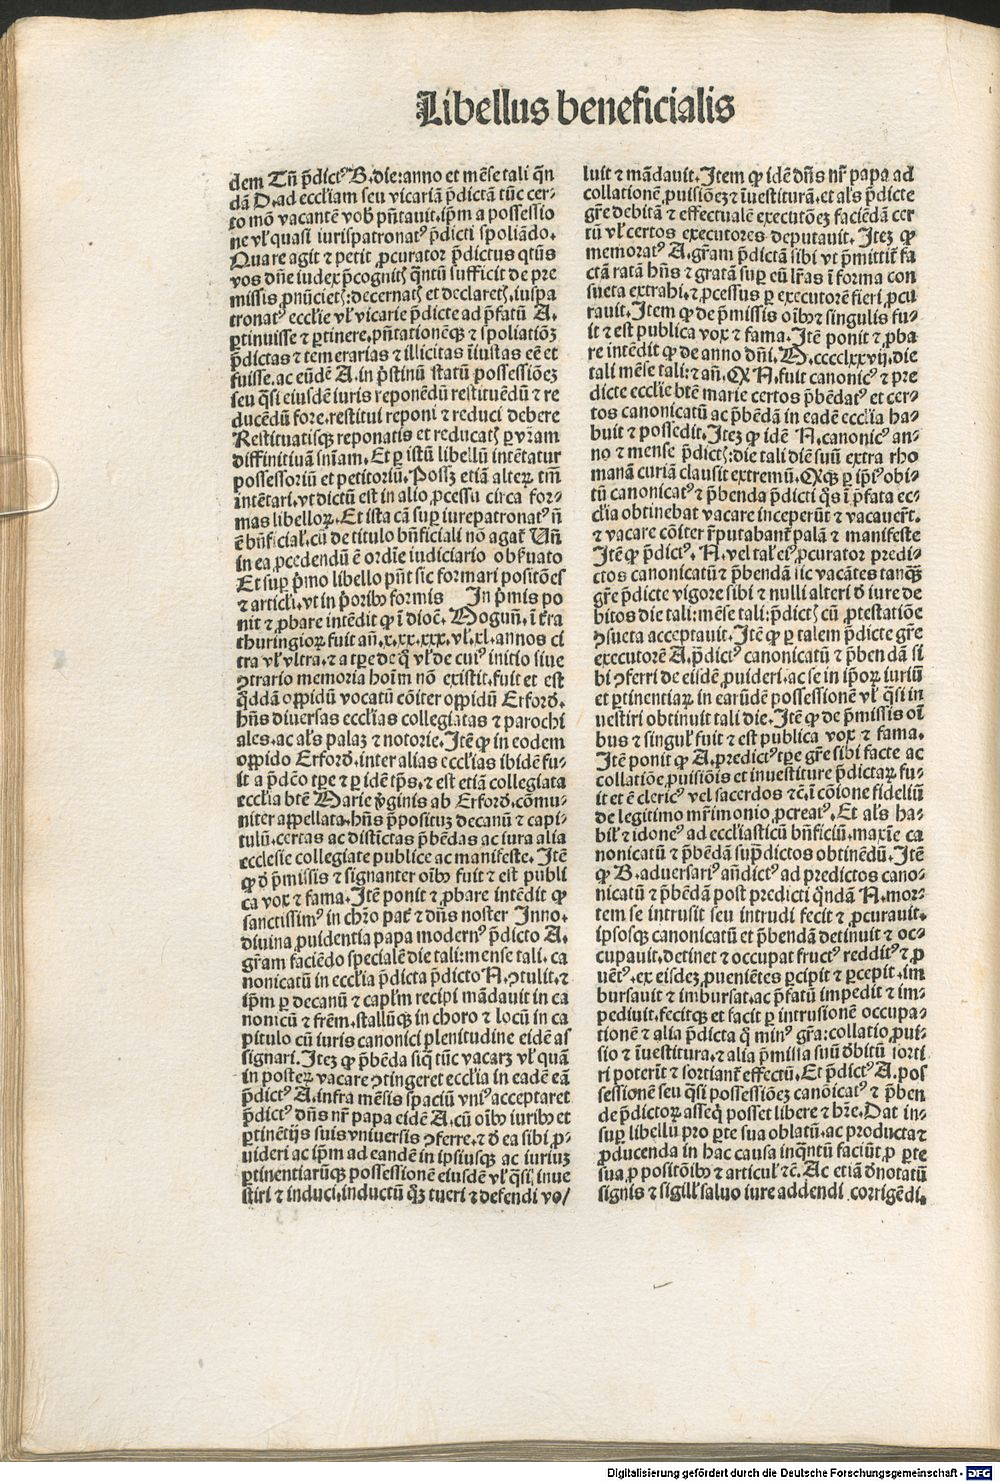 Libellus beneficialis
dem Tñ p̄dictꝰ B. die: anno et mēse tali qn̄
dā D. ad eccl̓iam seu vicariā p̄dictā tūc cer⸗
to mō vacantē vob̓ pn̄tauit. ip̄m a possessio
ne vl̓ quasi iurispatronatꝰ p̄dicti spoliādo.
Quare agit et petit ꝓcurator p̄dictus qtūs
vos dn̄e iudex p̄cognitꝭ qn̄tū sufficit de pre
missis ꝓnūcietꝭ: decernatꝭ et declaretꝭ. iuspa
tronatꝰ eccl̓ie vl̓ vicarie p̄dicte ad p̄fatū A.
ꝑtinuisse ⁊ ꝑtinere. pn̄tationēqꝫ ⁊ spoliatiōꝫ
p̄dictas ⁊ temerarias ⁊ illicitas īiustas eē et
fuisse. ac eūdē A. in p̄stinū statū possessiōeꝫ
seu qͣsi eiusdē iuris reponēdū restituēdū ⁊ re
ducēdū fore. restitui reponi ⁊ reduci debere
Restituatisqꝫ reponatis et reducatꝭ ꝑ vr̄am
diffinitiuā sniam. Et ꝑ istū libellū intētatur
possessoriū et petitoriū. Possꝫ etiā alterꝝ tm̄
intētari. vt dictū est in alio ꝓcessu circa for⸗
mas libelloꝝ. Et ista cā suꝑ iurepatronatꝰ n̄
ē bn̄ficial̓. cū de titulo bn̄ficiali nō agat̄ Vn̄
in ea ꝓcedendū ē ordīe iudiciario obẜuato
Et suꝑ p̄mo libello pn̄t sic formari positōes
⁊ articl̓i. vt in p̄oribꝰ formis In p̄mis po
nit ⁊ ꝓbare intēdit ꝙ ī dioc̄. Mogun̄. ī tr̄a
thuringioꝝ fuit an̄. x. xx. xxx. vl̓. xl. annos ci
tra vl̓ vltra. ⁊ a tꝑe de qͦ vl̓ de cuiꝰ initio siue
ꝯtrario memoria hoīm nō existit. fuit et est
qͦddā oppidū vocatū cōiter oppidū Erford̓.
hn̄s diuersas eccl̓ias collegiatas ⁊ parochi
ales. ac al̓s palaꝫ ⁊ notorie. Itē ꝙ in eodem
oppido Erford̓. inter alias eccl̓ias ibidē fu⸗
it a p̄dc̄o tꝑe ⁊ ꝑ idē tp̄s. ⁊ est etiā collegiata
eccl̓ia btē Marie v̓ginis ab Erford̓. cōmu⸗
niter appellata. hn̄s p̄positū decanū ⁊ capi⸗
tulū. certas ac distīctas p̄bēdas ac iura alia
ecclesie collegiate publice ac manifeste. Itē
ꝙ d̓ p̄missis ⁊ signanter oībꝰ fuit ⁊ est publi
ca vox ⁊ fama. Itē ponit ⁊ ꝓbare intēdit ꝙ
sanctissimꝰ in chr̄o pat̄ ⁊ dn̄s noster Inno.
diuina ꝓuidentia papa modernꝰ p̄dicto A.
gr̄am faciēdo specialē die tali: mense tali. ca
nonicatū in eccl̓ia p̄dicta p̄dicto N. ꝯtulit. ⁊
ip̄m ꝑ decanū ⁊ capl̓m recipi mādauit in ca
nonicū ⁊ fr̄em. stallūqꝫ in choro ⁊ locū in ca
pitulo cū iuris canonici plenitudine eidē as
signari. Iteꝫ ꝙ p̄bēda siqͣ tūc vacarꝫ vl̓ quā
in posteꝝ vacare ꝯtingeret eccl̓ia in eadē eā
p̄dictꝰ A. infra mēsis spaciū vniꝰ acceptaret
p̄dictꝰ dn̄s nr̄ papa eidē A. cū oībꝰ iuribꝰ et
ꝑtinētijs suis vniuersis ꝯferre. ⁊ d̓ ea sibi ꝓ⸗
uideri ac ip̄m ad eandē in ipsiusqꝫ ac iuriuꝫ
ꝑtinentiarūqꝫ possessionē eiusdē vl̓ qͣsi. inue
stiri ⁊ induci. inductū qͦꝫ tueri ⁊ defendi vo/
luit ⁊ mādauit. Item ꝙ idē dn̄s nr̄ papa ad
collationē. ꝓuisiōeꝫ ⁊ īuestiturā. et al̓s p̄dicte
gr̄e debitā ⁊ effectualē executōeꝫ faciēdā cer
tū vl̓ certos executores deputauit. Iteꝫ ꝙ
memoratꝰ A. gr̄am p̄dictā sibi vt p̄mittit̄ fa
ctā ratā hn̄s ⁊ gratā suꝑ eū lr̄as ī forma con
sueta extrahi. ⁊ ꝓcessus ꝑ executorē fieri ꝓcu
rauit. Item ꝙ de p̄missis oībꝰ ⁊ singulis fu⸗
it ⁊ est publica vox ⁊ fama. Itē ponit ⁊ ꝓba
re intēdit ꝙ de anno dn̄i. M. cccclxxvij. die
tali mēse tali: ⁊ an̄. QꝪ N. fuit canonicꝰ ⁊ pre
dicte eccl̓ie btē marie certos p̄bēdatꝰ et cer⸗
tos canonicatū ac p̄bēdā in eadē eccl̓ia ha⸗
buit ⁊ possedit. Iteꝫ ꝙ idē N. canonicꝰ an⸗
no ⁊ mense p̄dictꝭ: die tali diē suū extra rho
manā curiā clausit extremū. QꝪqꝫ ꝑ ip̄iꝰ obi⸗
tū canonicatꝰ ⁊ p̄benda p̄dicti qͦs ī p̄fata ec⸗
cl̓ia obtinebat vacare inceperūt ⁊ vacauer̄t.
⁊ vacare cōiter r̓putabant̄ palā ⁊ manifeste
Itē ꝙ p̄dictꝰ. N. vel tal̓ eiꝰ ꝓcurator predi⸗
ctos canonicatū ⁊ p̄bendā sic vacātes tanqꝫ
gr̄e p̄dicte vigore sibi ⁊ nulli alteri d̓ iure de
bitos die tali: mēse tali: p̄dictꝭ cū ꝓtestatiōe
ꝯsueta acceptauit. Itē ꝙ ꝑ talem p̄dicte gr̄e
executorē A. p̄dictꝰ canonicatū ⁊ p̄bendā si
bi ꝯferri de eisdē ꝓuideri. ac se in ip̄oꝝ iuriū
et ꝑtinentiaꝝ in earūdē possessionē vl̓ qͣsi in
uestiri obtinuit tali die. Itē ꝙ de p̄missis oī
bus ⁊ singul̓ fuit ⁊ est publica vox ⁊ fama.
Itē ponit ꝙ A. predictꝰ tꝑe gr̄e sibi facte ac
collatiōe ꝓuisiōis et inuestiture p̄dictaꝝ fu⸗
it et ē clericꝰ vel sacerdos ⁊c̄. ī cōione fideliū
de legitimo mr̄imonio ꝓcreatꝰ. Et al̓s ha⸗
bil̓ ⁊ idoneꝰ ad eccl̓iasticū bn̄ficiū. maxīe ca
nonicatū ⁊ p̄bēdā sup̄dictos obtinēdū. Itē
ꝙ B. aduersariꝰ an̄dictꝰ ad predictos cano⸗
nicatū ⁊ p̄bēdā post predicti qͦndā N. mor⸗
tem se intrusit seu intrudi fecit ⁊ ꝓcurauit.
ipsosqꝫ canonicatū et p̄bendā detinuit ⁊ oc⸗
cupauit. detinet ⁊ occupat fructꝰ redditꝰ ⁊ ꝓ
uētꝰ. ex eisdeꝫ ꝓueniētes ꝑcipit ⁊ ꝑcepit. im
bursauit ⁊ imbursat. ac p̄fatū impedit ⁊ im⸗
pediuit. fecitqꝫ et facit ꝑ intrusionē occupa⸗
tionē ⁊ alia p̄dicta qͦ minꝰ gr̄a: collatio ꝓui⸗
sio ⁊ īuestitura. ⁊ alia p̄missa suū d̓bitū sorti
ri poterūt ⁊ sortiant̄ effectū. Et p̄dictꝰ A. pos
sessionē seu qͣsi possessiōeꝫ canōicatꝰ ⁊ p̄ben
de p̄dictoꝝ asseq̄ posset libere ⁊ bn̄e. Dat in⸗
suꝑ libellū pro ꝑte sua oblatū. ac producta ⁊
ꝓducenda in hac causa inqn̄tū faciūt ꝓ ꝑte
sua ꝓ positōibꝰ ⁊ articul̓ ⁊c̄. Ac etiā d̓notatū
signis ⁊ sigill̓ saluo iure addendi. corrigēdi.
Digitalisierung gefördert durch die Deutsche Forschungsgemeinschaft - DFG